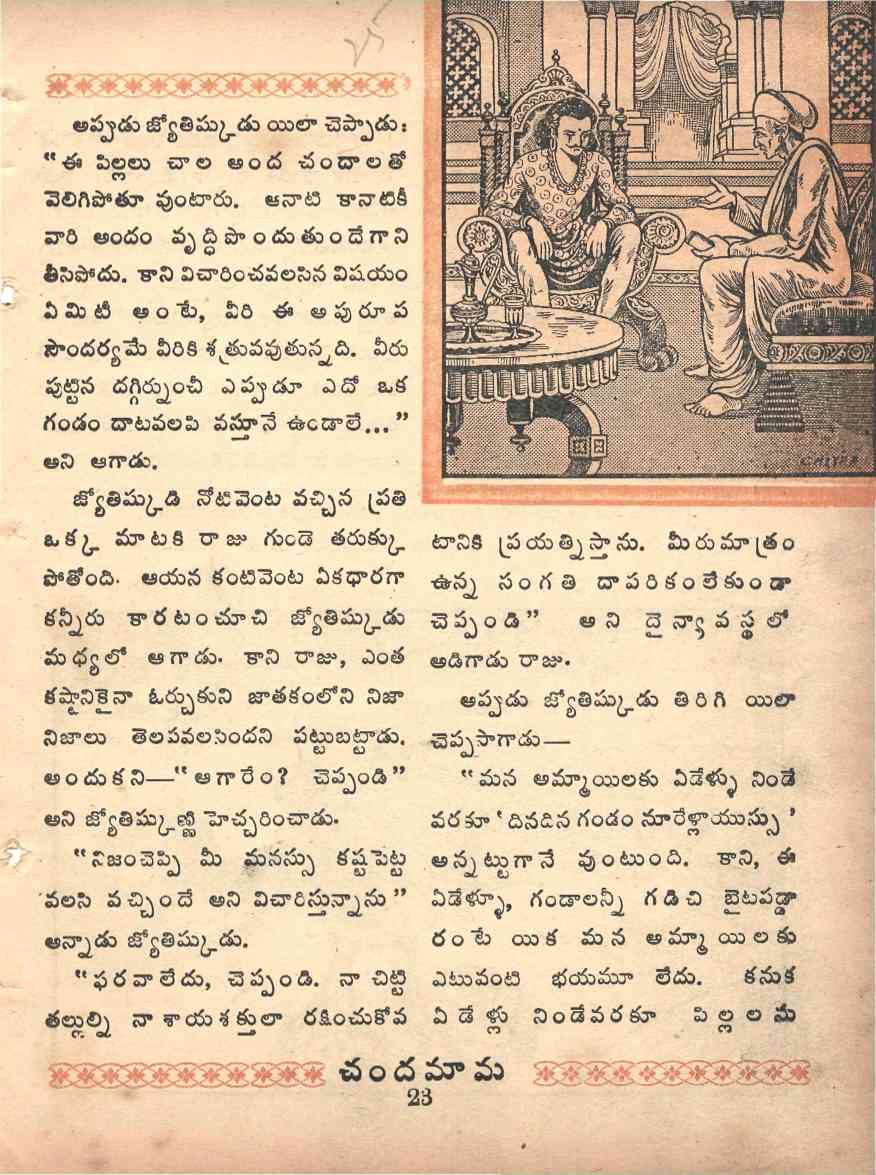 అప్పుడు జ్యోతిష్కుడు యిలా చెప్పాడు:
“ఈ పిల్లలు చాల అంద చందాలతో
వెలిగిపోతూ వుంటారు. ఆనాటి కానాటికీ
వారి అందం వృద్ధిపొందుతుందేగాని
తీసిపోదు. కాని విచారించవలసిన విషయం
ఏమిటీ అంటే, వీరి ఈ అపురూప
సౌందర్యమే వీరికి శత్రువవుతున్నది. వీరు
పుట్టిన దగ్గిర్నుంచీ ఎప్పుడూ ఎదో ఒక
గండం దాటవలపి వస్తూనే ఉండాలే...”
అని ఆగాడు.
జ్యోతిష్కుడి నోటివెంట వచ్చిన ప్రతి
ఒక్క మాటకి రాజు గుండె తరుక్కు
పోతోంది. ఆయన కంటివెంట ఏకధారగా
కన్నీరు కారటంచూచి జ్యోతిష్కుడు
మధ్యలో ఆగాడు. కాని రాజు, ఎంత
కష్టానికైనా ఓర్చుకుని జాతకంలోని నిజా
నిజాలు తెలపవలసిందని పట్టుబట్టాడు.
అందుకని—“ఆగారేం? చెప్పండి”
అని జ్యోతిష్కుణ్ణి హెచ్చరించాడు.
“నిజంచెప్పి మీ మనస్సు కష్టపెట్ట
వలసి వచ్చిందే అని విచారిస్తున్నాను”
అన్నాడు జ్యోతిష్కుడు.
“ఫరవాలేదు, చెప్పండి. నా చిట్టి
తల్లుల్ని నా శాయశక్తులా రక్షించుకోవ
టానికి ప్రయత్నిస్తాను. మీరుమాత్రం
ఉన్న సంగతి దాపరికంలేకుండా
చెప్పండి” అని దైన్యావస్థలో
అడిగాడు రాజు.
అప్పుడు జ్యోతిష్కుడు తిరిగి యిలా
చెప్పసాగాడు—
“మన అమ్మాయిలకు ఏడేళ్ళు నిండే
వరకూ ‘దినదిన గండం నూరేళ్లాయుస్సు’
అన్నట్టుగానే వుంటుంది. కాని, ఈ
ఏడేళ్ళూ, గండాలన్నీ గడిచి బైటపడ్డా
రంటే యిక మన అమ్మాయిలకు
ఎటువంటి భయమూ లేదు. కనుక
ఏడేళ్లు నిండేవరకూ పిల్లలను
చందమామ
23
25
CHITRA